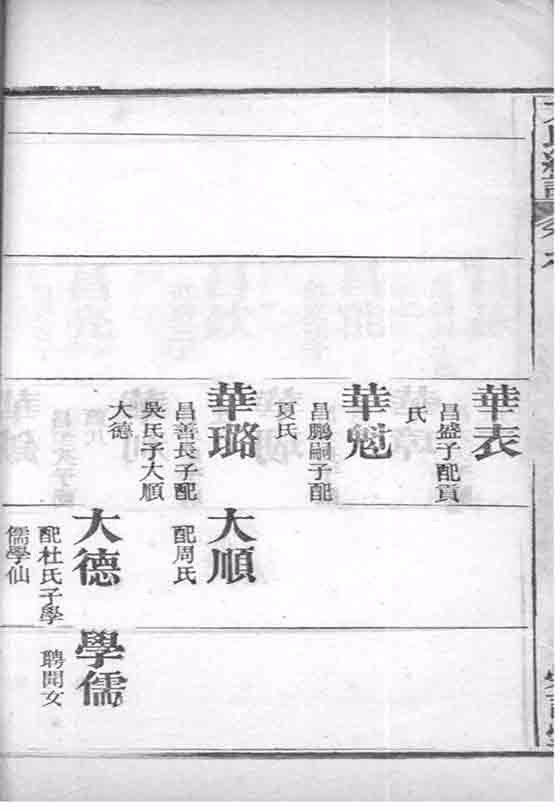 華表
昌盛子配賁
氏
華魁
昌鵬嗣子配
夏氏
華璐
昌善長子配
吳氏子大順
大德
大順
配周氏
大德
配杜氏子學
儒學仙
學儒
聘閆女